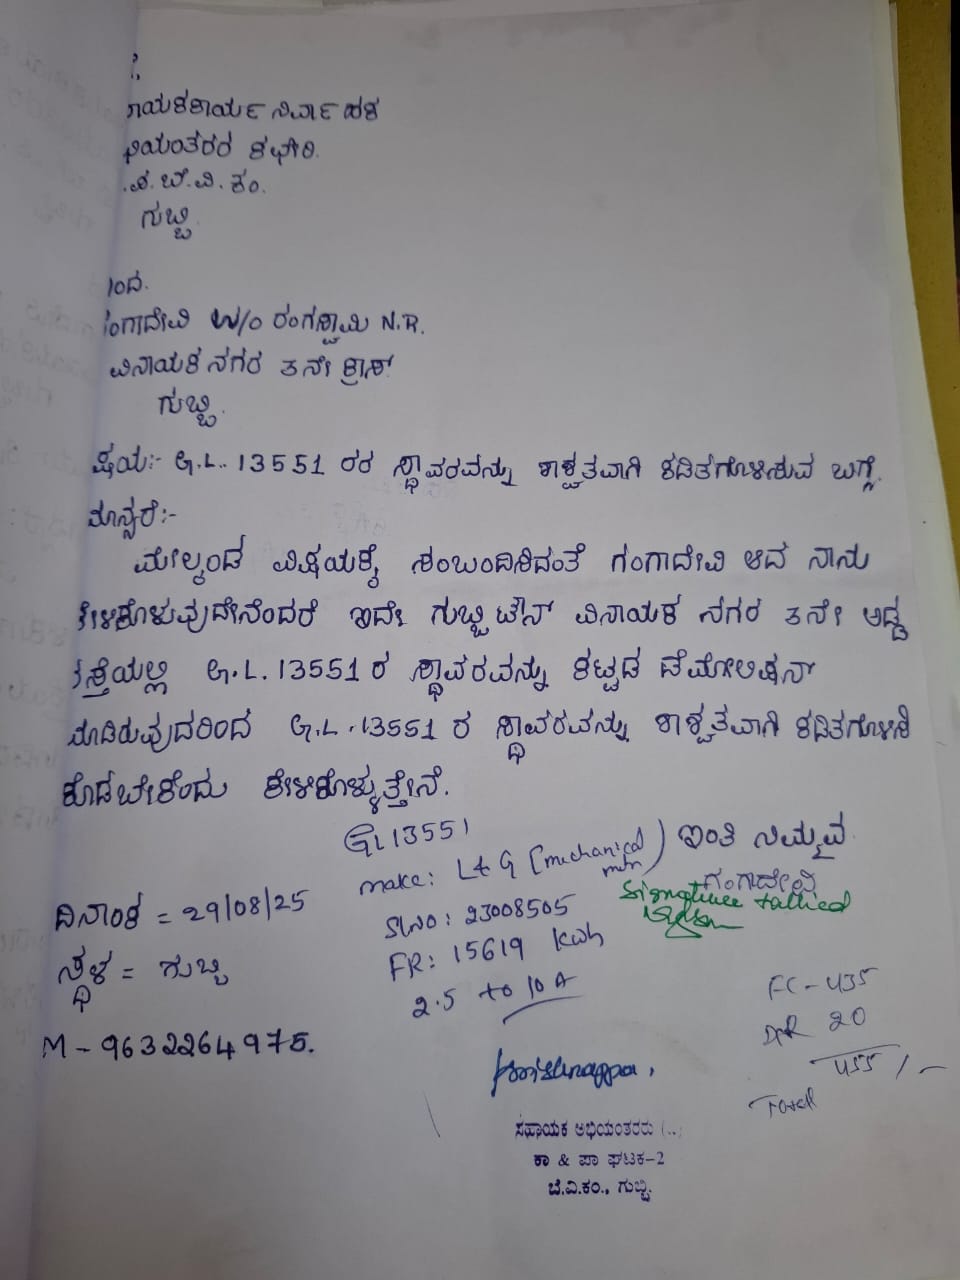 ಗೆ,
ಾಯಕ ಕಾರ್ಯ ನಿರ್ವಾಹಕ
ಭಿಯಂತರರ ಕಛೇರಿ.
.ಪ. ಬೆ. ವಿ. ಕಂ.
ಗುಬ್ಬಿ
ಇಂದ.
ಗಂಗಾದೇವಿ W/o ರಂಗಸ್ವಾಮಿ N.R.
ವಿನಾಯಕ ನಗರ 3ನೇ ಕ್ರಾಸ್
ಗುಬ್ಬಿ.
ವಿಷಯ:- G.L. 13551 ರರ ಸ್ಥಾವರವನ್ನು ಶಾಶ್ವತವಾಗಿ ಕಡಿತಗೊಳಿಸುವ ಬಗ್ಗೆ.
ಮಾನ್ಯರೆ:-
ಮೇಲ್ಕಂಡ ವಿಷಯಕ್ಕೆ ಸಂಬಂದಿಸಿದಂತೆ ಗಂಗಾದೇವಿ ಆದ ನಾನು
ಕೇಳಿಕೊಳುವುದೇನೆಂದರೆ ಇದೇ ಗುಬ್ಬಿ ಟೌನ್ ವಿನಾಯಕ ನಗರ 3ನೇ ಅಡ್ಡ
ರಸ್ತೆಯಲ್ಲಿ G.L.13551 ರ ಸ್ಥಾವರವನ್ನು ಕಟ್ಟಡ ಡೆಮೋಲಿಷನ್
ಮಾಡಿರುವುದರಿಂದ G.L.13551 ರ ಸ್ಥಾವರವನ್ನು ಶಾಶ್ವತವಾಗಿ ಕಡಿತಗೊಳಿಸಿ
ಕೊಡಬೇಕೆಂದು ಕೇಳಿಕೊಳ್ಳುತ್ತೇನೆ.
GL 13551
ಇಂತಿ ನಿಮ್ಮವ
make: L+G (mechanical mtr)
ಗಂಗಾದೇವಿ
Signature tallied
ದಿನಾಂಕ = 29/08/25
SLNO: 23008505
FR: 15619 kwh
ಸ್ಥಳ = ಗುಬ್ಬಿ
2.5 to 10 A
FC - 435
20
M - 9632264975.
455/-
Total
ಸಹಾಯಕ ಅಭಿಯಂತರರು (..
ಕಾ & ಪಾ ಘಟಕ-2
ಬೆ.ವಿ.ಕಂ., ಗುಬ್ಬಿ.